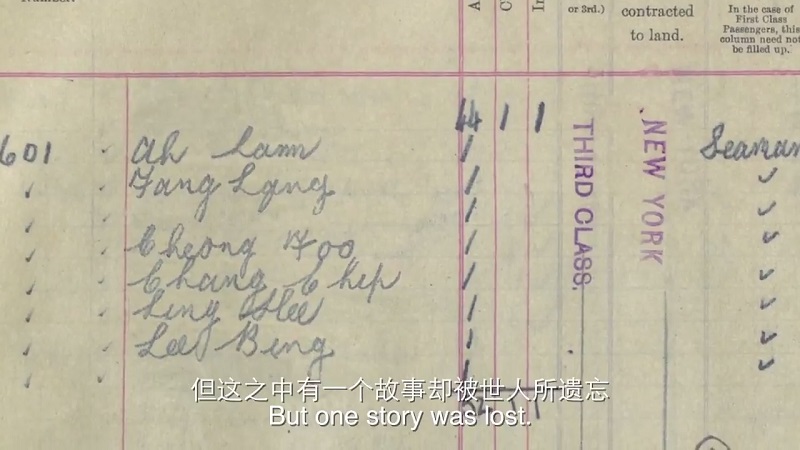 Number.
or 3rd.)
contracted
to land.
In the case of
First Class
Passengers, this
column need not
be filled up.
44 1 1
601 Ah Lam Seaman
Fang Lang
Cheong Foo
Chang Chip
Ling Hee
Lee Bing
THIRD CLASS.
NEW YORK
但这之中有一个故事却被世人所遗忘
But one story was lost.